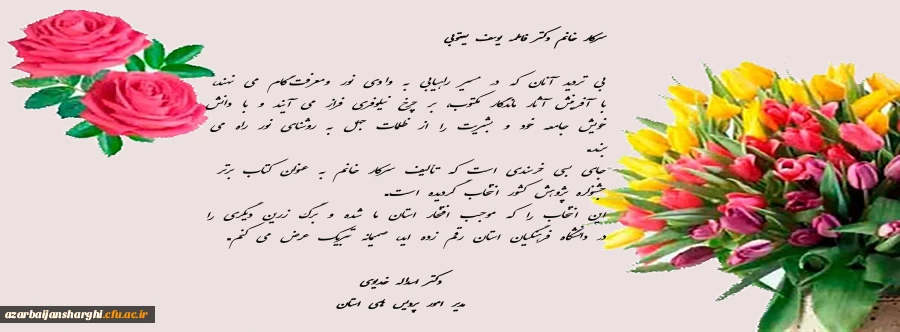 سرکار خانم دکتر فاطمه یوسف یعقوبی
بی تردید آنان که در مسیر راهیابی به وادی نور و معرفت گام می نهند،
با آفرینش آثار ماندگار مکتوب، بر چرخ نیلوفری فراز می آیند و با دانش
خویش جامعه خود و بشریت را از ظلمات جهل به روشنای نور راه می
برند.
جای بسی خرسندی است که تالیف سرکار خانم به عنوان کتاب برتر
جشنواره پژوهش کشور انتخاب گردیده است.
این انتخاب را که موجب افتخار استان ما شده و برگ زرین دیگری را
در دانشگاه فرهنگیان استان رقم زده اید، صمیمانه تبریک عرض می کنم.
دکتر اسداله خدیوی
مدیر امور پردیس های استان
azarbaijansharghi.cfu.ac.ir